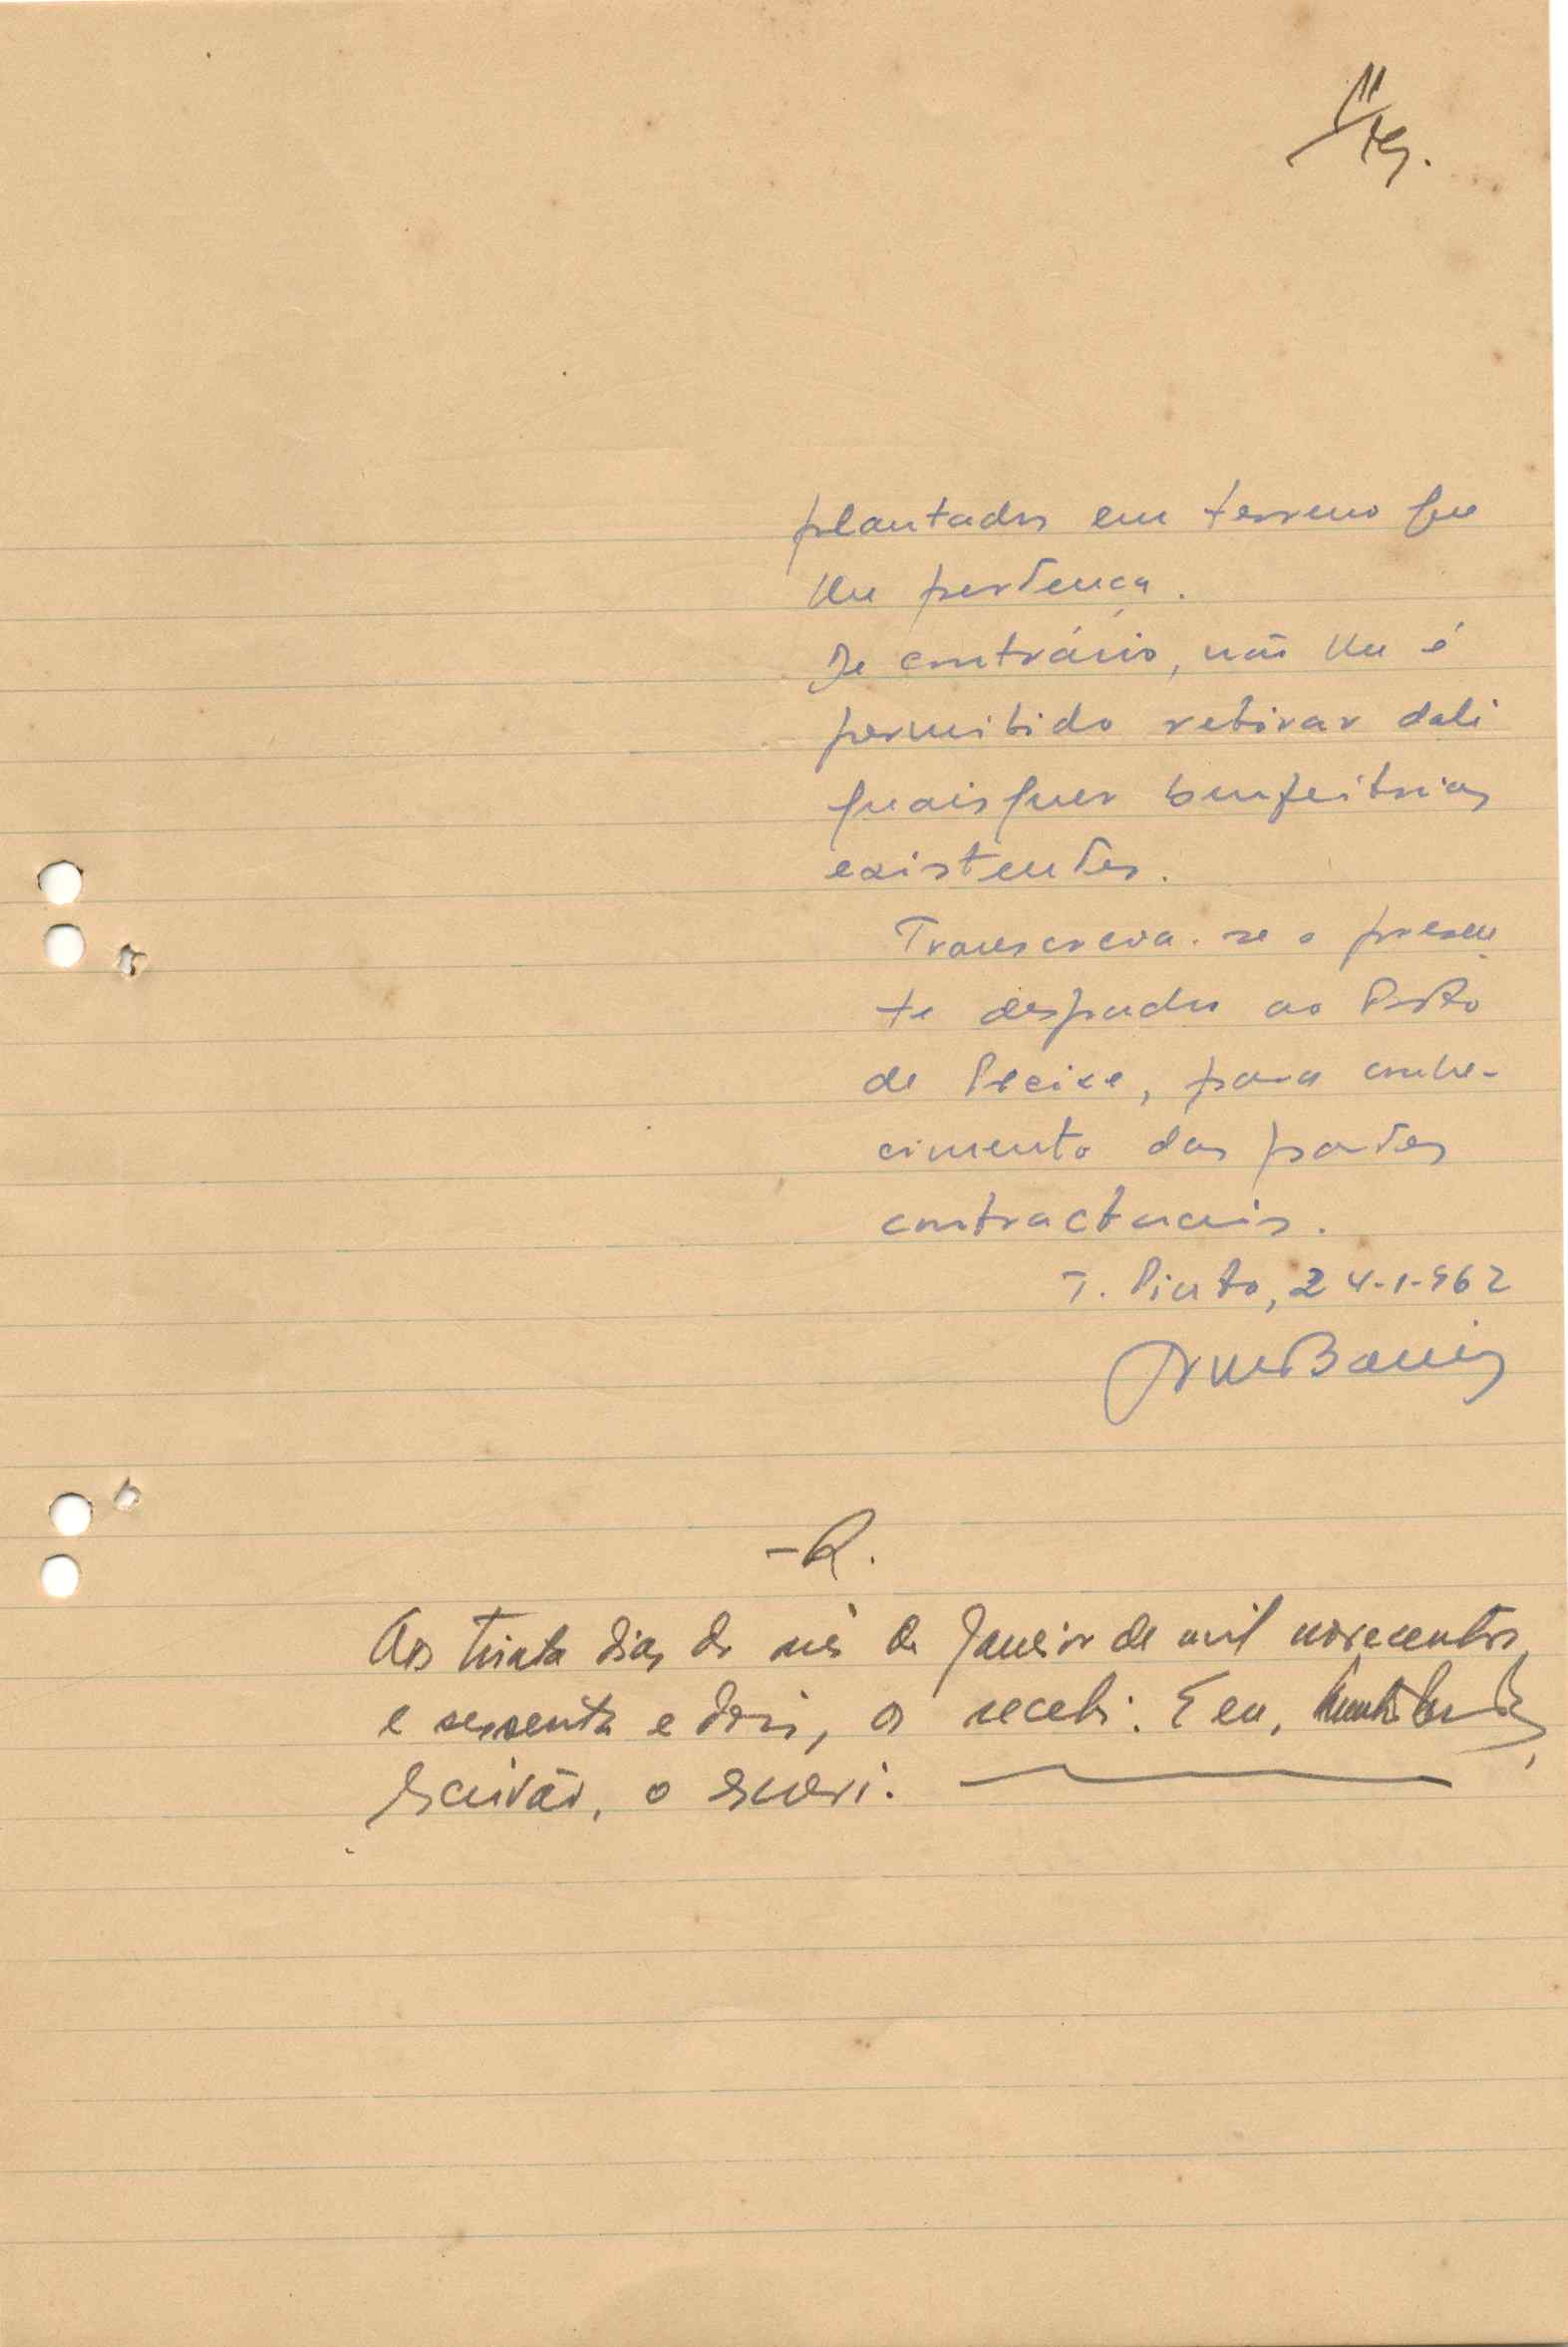 11
plantados em terreno que
lhe pertença.
De contrário, não lhe é
permitido retirar dali
quaisquer benfeitorias
existentes.
Transcreva-se o presen
te despacho ao Posto
de Pecixe, para conhe-
cimento das partes
contractuais.
T. Pinto, 24-1-962
-R.
Aos trinta dias do mês de Janeiro de mil novecentos
e sessenta e dois, os recebi. E eu,
Escrivão, o escrevi.